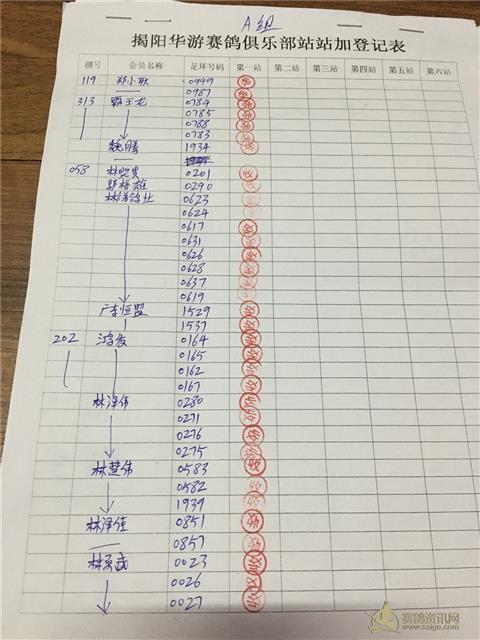 A组
揭阳华游赛鸽俱乐部站站加登记表
棚号 会员名称 足环号码 第一站 第二站 第三站 第四站 第五站 第六站
119 郑小歌 0999
0987
313 霸王龙 0784
0785
0788
0783
魏腾 1934
058 0201
0290
0623
0624
0617
0631
0626
0628
0637
0619
广东恒盟 1529
1537
202 鸿发 0164
0165
0162
0167
林泽伟 0280
0271
0276
0275
林楚伟 0583
0582
1939
林泽佳 0851
0857
0023
0026
0027
赛鸽资讯网
www.saige.com